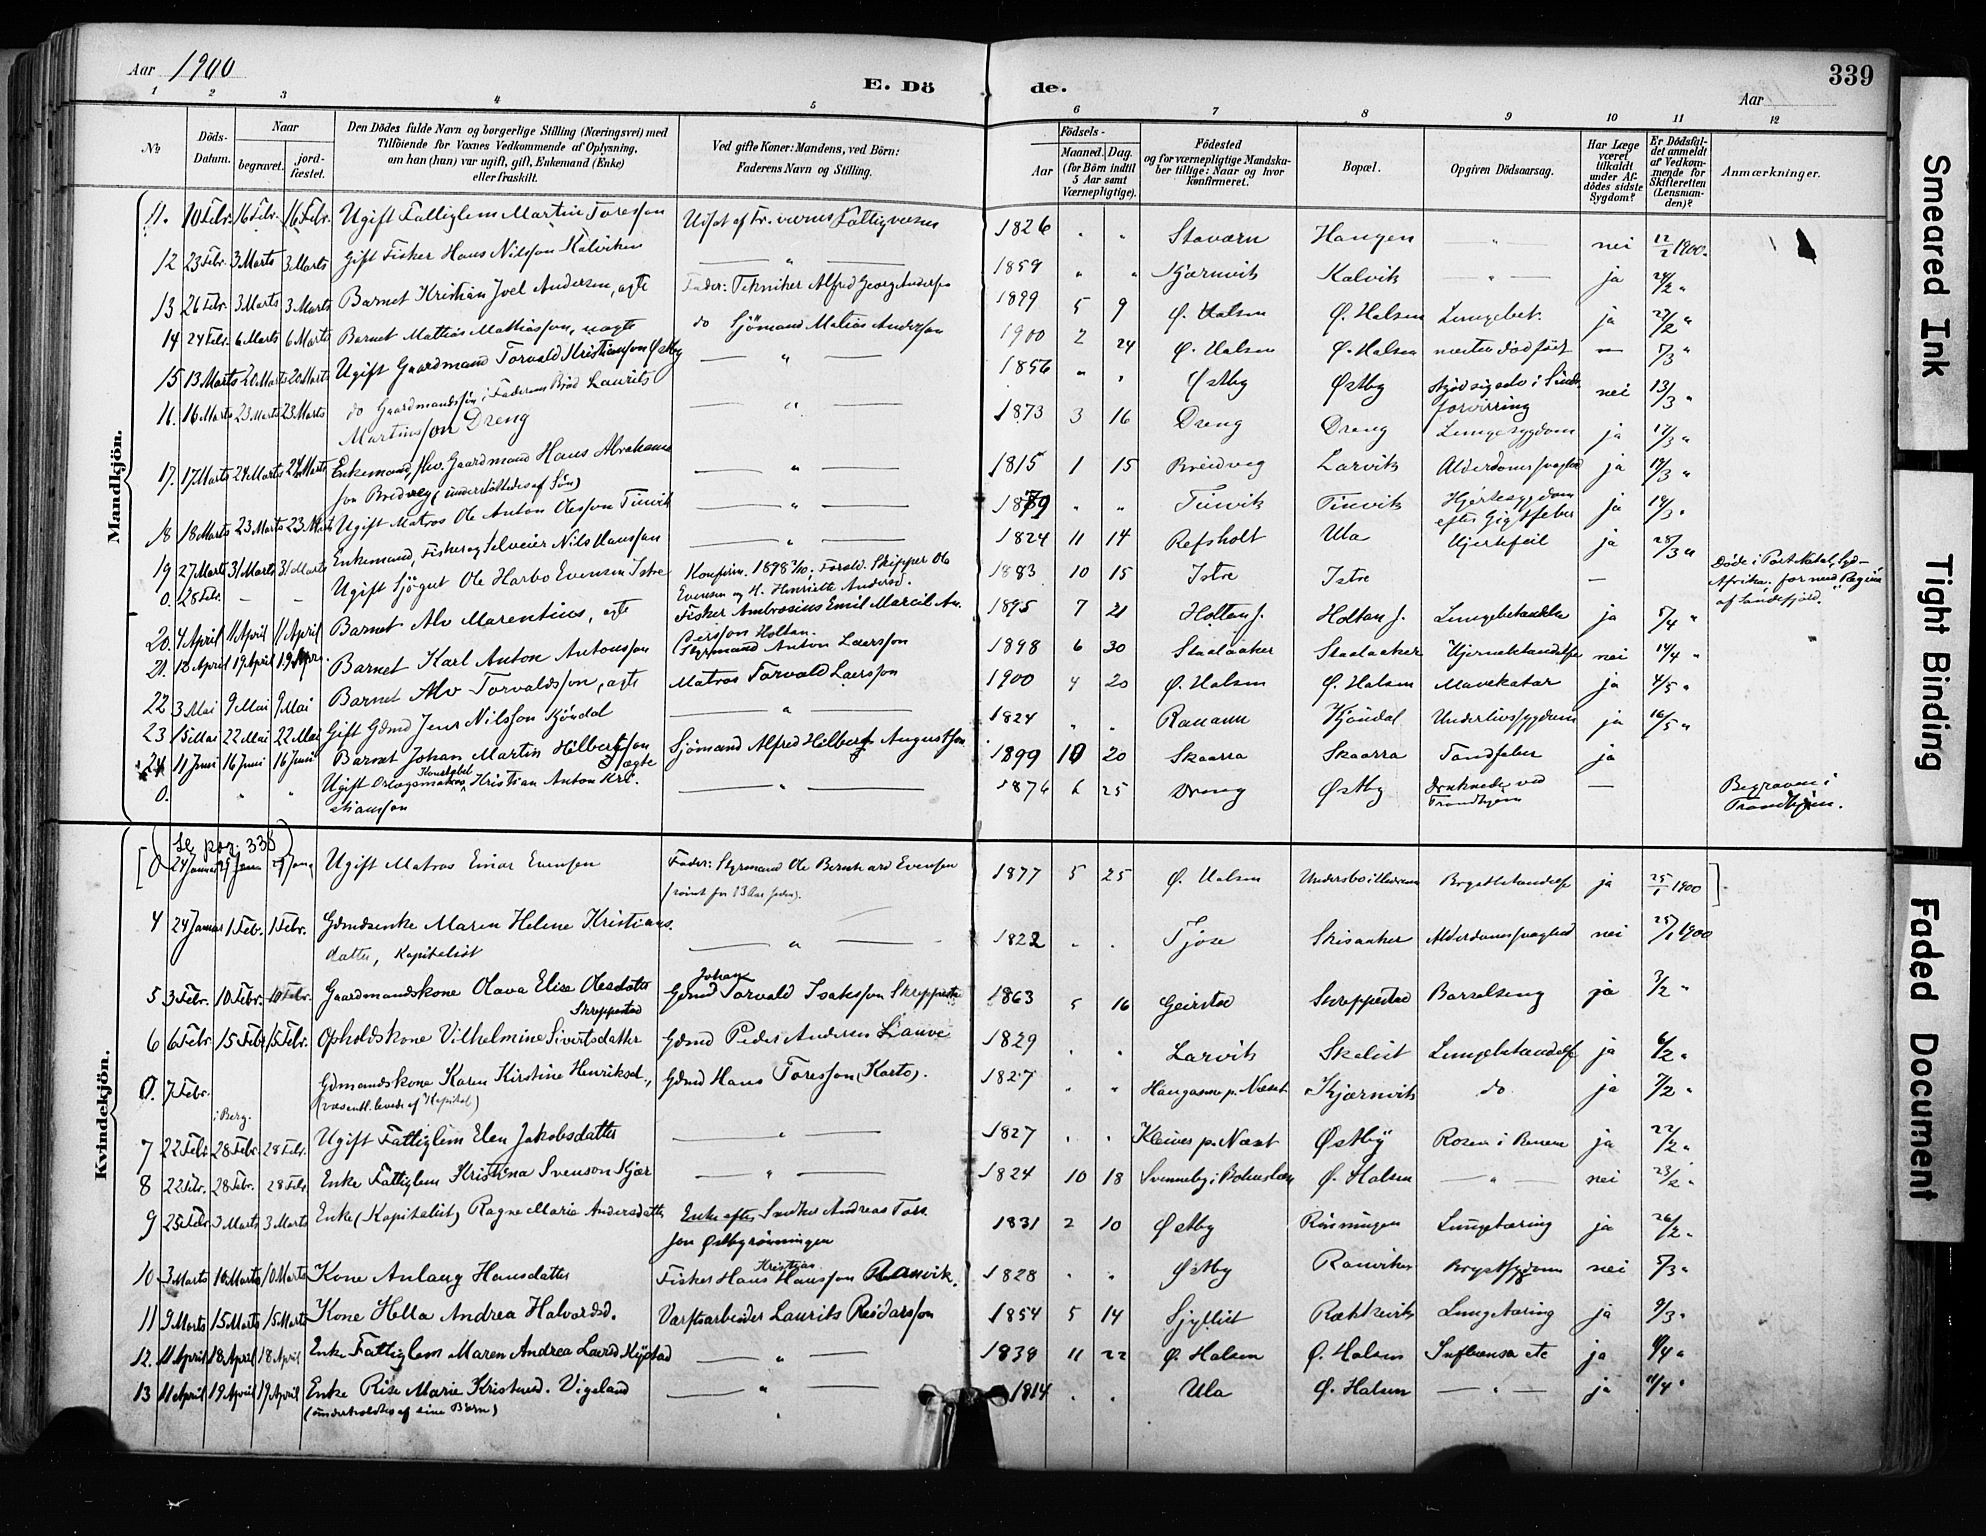 Aar 1900
E. Dö de.
Aar
339
1 2 3 4 5 6 7 8 9 10 11 12
No
Döds-Datum.
Naar
begravet.
jord-fæstet.
Den Dödes fulde Navn og borgerlige Stilling (Næringsvei) med
Tilföiende for Voxnes Vedkommende af Oplysning,
om han (hun) var ugift, gift, Enkemand (Enke)
eller fraskilt.
Ved gifte Koner: Mandens, ved Börn:
Faderens Navn og Stilling.
Födsels-
Aar
Maaned. Dag.
(for Börn indtil
5 Aar samt
Værnepligtige).
Födested
og for værnepligtige Mandska-
ber tillige: Naar og hvor
konfirmeret.
Bopæl.
Opgiven Dödsaarsag.
Har Læge
været
tilkaldt
under Af-
dödes sidste
Sygdom?
Er Dödsfal-
det anmeldt
af Vedkom-
mende for
Skifteretten
(Lensman-
den)?
Anmærkninger.
Mandkjön.
11. 10 Febr. 16 Febr. 16 Febr. Ugift Fattiglem Martin Toresson 1826 " " Staværn Haugen " nei 12/2 1900.
12 23 Febr. 3 Marts 3 Marts Gift Fisker Hans Nilsson Kalviken " 1859 " " Kjærnvik Kalvik " ja 24/2 "
13 26 Febr. 3 Marts 3 Marts Barnet Kristian Joel Andersen, ægte Fader: Tekniker Alfred Georg Andersen 1899 5 9 Ø. Halsen Ø. Halsen Lungebet. ja 27/2 "
14 24 Febr. 6 Marts 6 Marts Barnet Mathias Mathiasson, uægte do Sjömand Matias Anderson 1900 2 24 Ø. Halsen Ø. Halsen næsten dödfödt — 5/3 "
15 13 Marts 20 Marts 20 Marts Ugift Gaardmand Torvald Kristiansson Østby " 1856 " " Østby Østby nei 13/3 "
forvirring
16. 16 Marts 23 Marts 23 Marts do Gaardmandssön i Faderens Bröd Laurits " 1873 3 16 Dreng Dreng Lungesygdom ja 17/3 "
Martinsson Dreng
17. 17 Marts 24 Marts 24 Marts Enkemand, fhv. Gaardmand Hans Abrahams " 1815 1 15 Breidveg Larvik ja 19/3 "
son Bredveg (understöttedes af Sön)
18 18 Marts 23 Marts 23 Marts Ugift Matros Ole Anton Olesson Tinvik " 1879 " " Tinvik Tinvik Hjertesygdom ja 19/3 "
efter Gigtfeber
19 27 Marts 31 Marts 31 Marts Enkemand, Fisker og Selveier Nils Hansson " 1824 11 14 Refsholt Ula Hjertefeil ja 28/3 "
0. 28 Febr. — — Ugift Sjögut Ole Harbo Evensen Istre Konfirm. 1898 2/10, Foræld. Skipper Ole 1883 10 15 Istre Istre — Døde i Port Natal, Syd-
Evensen og H. Henriette Andersd. Afrika
af Sandefjord.
20. 4 April 11 April 11 April Barnet Alv Marentius, ægte Fisker Ambrosius Emil Marcil An. 1895 7 21 Holtan Holtan ja 5/4 "
dersson Holtan.
21. 12 April 19 April 19 April Barnet Karl Anton Antonsson Styrmand Anton Laersson 1898 6 30 Staalaaker Staalaaker nei 14/4 "
22 3 Mai 9 Mai 9 Mai Barnet Alv Torvaldsson, ægte Matros Torvald Laersson 1900 4 20 Ø. Halsen Ø. Halsen Mavekatar ja 4/5 "
23 15 Mai 22 Mai 22 Mai Gift Gdmd Jens Nilsson Kjöndal " 1824 " " Ranann Kjöndal Underlivssygdom ja 16/5 "
24 11 Juni 16 Juni 16 Juni Barnet Johan Martin Hilbertsson Sjömand Alfred Hilbert Augustson 1899 10 20 Skaarra Skaarra Tandfeber ja
ægte
0. " " Ugift Orlogsmatros Konstabel Kristian Anton Kri- " 1876 6 25 Dreng Østby Druknede ved — Begraven i
stiansson Trondhjem Trondhjem.
Kvindekjön.
(se pag. 338)
[0 24 Januar Ugift Matros Einar Evensen Fader: Styrmand Ole Bernhard Evensen 1877 5 25 Ø. Halsen Brystbetændelse ja 25/1 1900 ]
(reist for 13 Aar siden).
4 24 Januar 1 Febr. 1 Febr. Gdmdsenke Maren Helene Kristians. " 1822 " " Tjose Skisaaker Alderdomssvaghed nei 25/1 1900
datter, Kapitalist
5 3 Febr. 10 Febr. 10 Febr. Gaardmandskone Olava Elise Olesdatter Gdmd Johan Torvald Isaksson Skreppestad 1863 5 16 Geirstad Skreppestad Barselseng ja 3/2 "
Skreppestad
6 6 Febr. 15 Febr. 15 Febr. Opholdskone Vilhelmine Sivertsdatter Gdmd Peder Andersen Lauve 1829 " " Larvik Skelist Lungebetændelse ja 6/2 "
0. 7 Febr. Gdmandskone Karen Kirstine Henriksd., Gdmd Hans Toresson (Karto). 1827 " " Haugane p. Næset Kjærnvik do ja 7/2 "
(væsentl. levede af Kapital)
i Berg.
7 22 Febr. 28 Febr. 28 Febr. Ugift Fattiglem Elen Jakobsdatter " 1827 " " Kleiver p. Næset Østby Rosen i Benene ja 22/2 "
8 22 Febr. 28 Febr. 28 Febr. Enke Fattiglem Kristina Svenson Kjær " 1824 10 18 Svenneby i Bohuslæn Ø. Halsen " nei 23/2 "
9 25 Febr. 3 Marts 3 Marts Enke (Kapitalist) Ragne Marie Andersdatter Enke efter Snedker Andreas Tors 1831 2 10 Østby Rönningen Lungetæring ja 26/2 "
son Østbyrönningen
10 3 Marts 10 Marts 10 Marts Kone Anlaug Hansdatter Fisker Hans Kristian Hansson Ranvik. 1828 " " Østby Ranviken Brystsygdom nei 5/3 "
11 9 Marts 15 Marts 15 Marts Kone Hella Andrea Halvardsd. Værftsarbeider Laurits Reidarsson 1854 5 14 Sjyllist Rækkevik Lungetæring ja 9/3 "
12. 11 April 18 April 18 April Enke Fattiglem Maren Andrea Laersd Nystad " 1839 11 22 Ø. Halsen Ø. Halsen Influensa etc ja 11/4 "
13 11 April 19 April 19 April Enke Rise Marie Kristensd. Vigeland " 1814 " " Ula Ø. Halsen " ja 11/4 "
(underholdtes af sine Börn)
Smeared Ink
Tight Binding
Faded Document